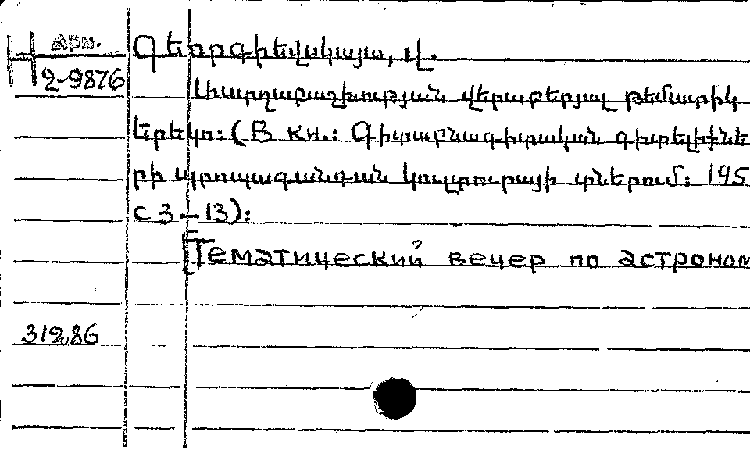 Арм.
Н 2-9876
Գեորգիեվսկայա, Վ.
Լուսաբաշխության վերաբերյալ թեմատիկ
երեկո։ (В кн.: Գիտաբնագիտական գիտելիքնե
րի պրոպագանդան կուլտուրայի տներում։ 195
с 3-13)։
[Тематический вечер по астроном
31286